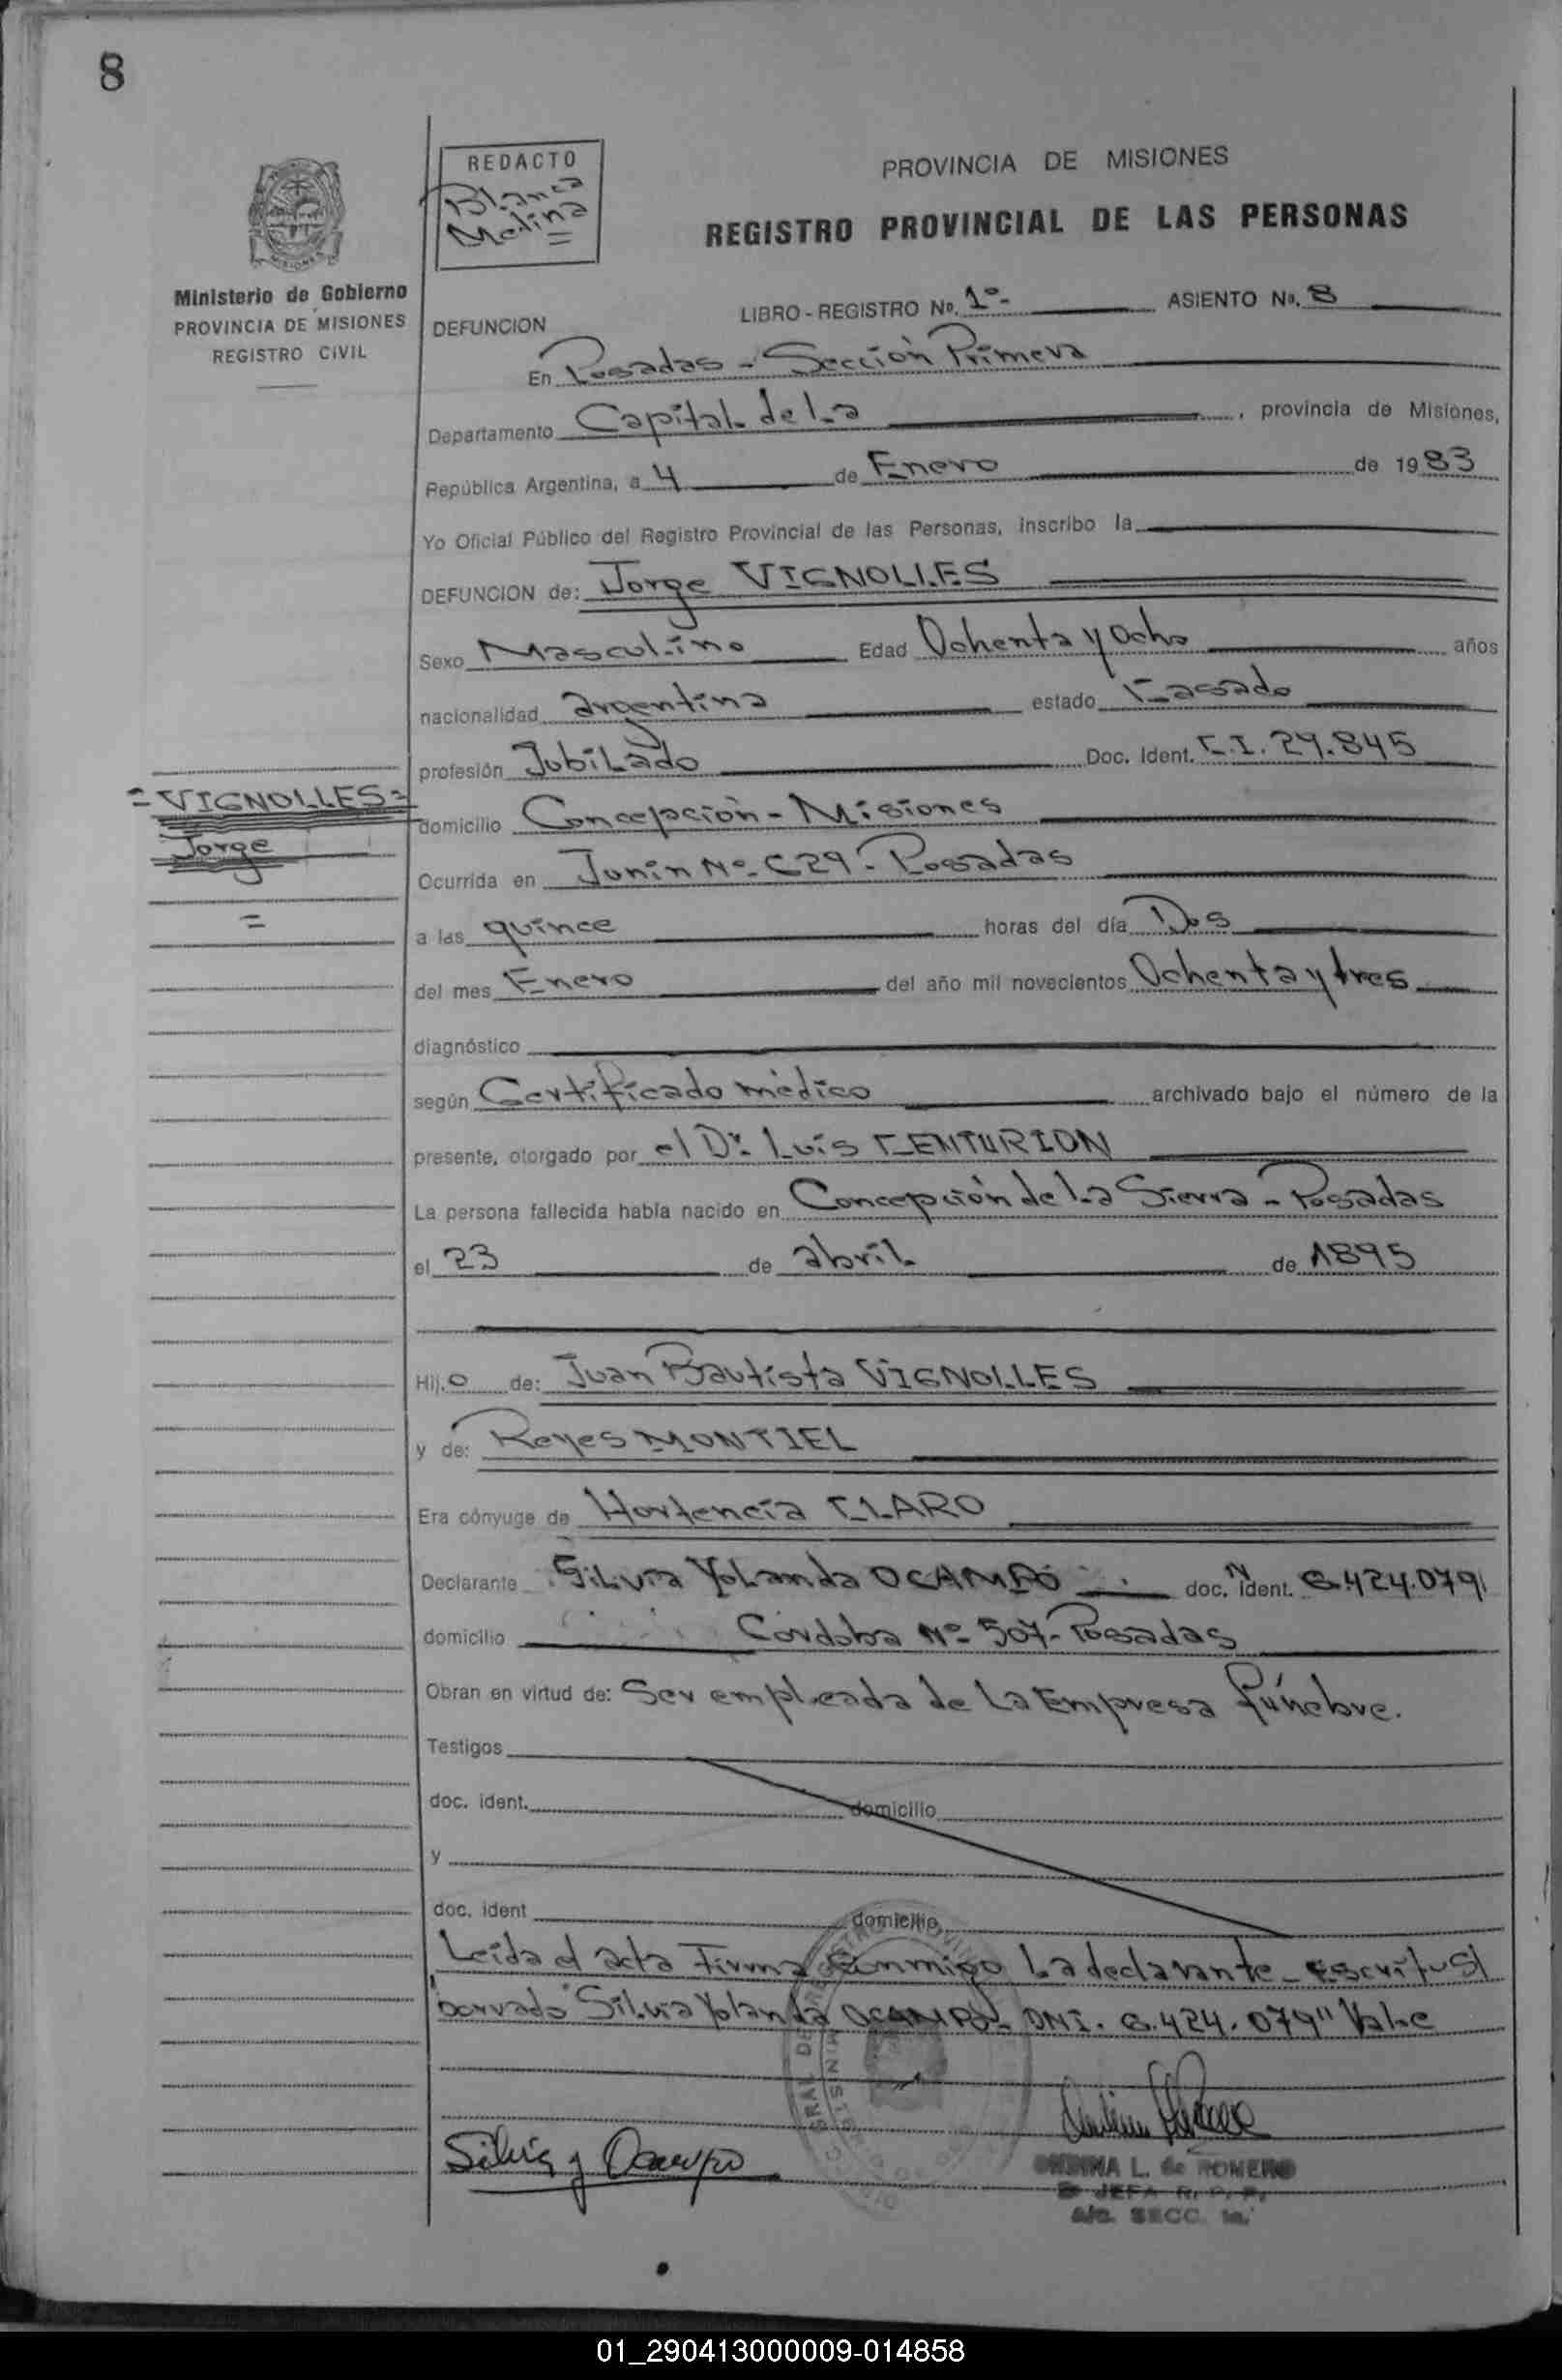 8
REDACTO
Blanca
Medina
PROVINCIA DE MISIONES
REGISTRO PROVINCIAL DE LAS PERSONAS
MISIONES
Ministerio de Gobierno
PROVINCIA DE MISIONES
REGISTRO CIVIL
LIBRO - REGISTRO Nº. 1º- ASIENTO Nº. 8
DEFUNCION
En Posadas - Sección Primera
Departamento Capital de la , provincia de Misiones,
República Argentina, a 4 de Enero de 1983
Yo Oficial Público del Registro Provincial de las Personas, inscribo la
DEFUNCION de: Jorge VIGNOLLES
Sexo Masculino Edad Ochenta y Ocho años
nacionalidad argentina estado Casado
profesión Jubilado Doc. Ident. C.I. 29.845
= VIGNOLLES =
Jorge
=
domicilio Concepción - Misiones
Ocurrida en Junín Nº- 629 - Posadas
a las quince horas del día Dos
del mes Enero del año mil novecientos Ochenta y tres
diagnóstico
según Certificado médico archivado bajo el número de la
presente, otorgado por el Dr. Luis CENTURION
La persona fallecida había nacido en Concepción de la Sierra - Posadas
el 23 de abril de 1895
Hij.o de: Juan Bautista VIGNOLLES
y de: Reyes MONTIEL
Era cónyuge de Hortencia CLARO
Declarante Silvia Yolanda OCAMPO doc. ident. 6.424.079
domicilio Córdoba Nº- 507- Posadas
Obran en virtud de: Ser empleada de la Empresa fúnebre.
Testigos
doc. ident. domicilio
y
doc. ident domicilio
Leída el acta Firma conmigo la declarante - Escrito s/
borrado "Silvia Yolanda OCAMPO - DNI. 6.424.079" Vale
Silvia y Ocampo
L. de ROMERO
JEFA R. P. P.
a/c. SECC. 1a.
01_290413000009-014858